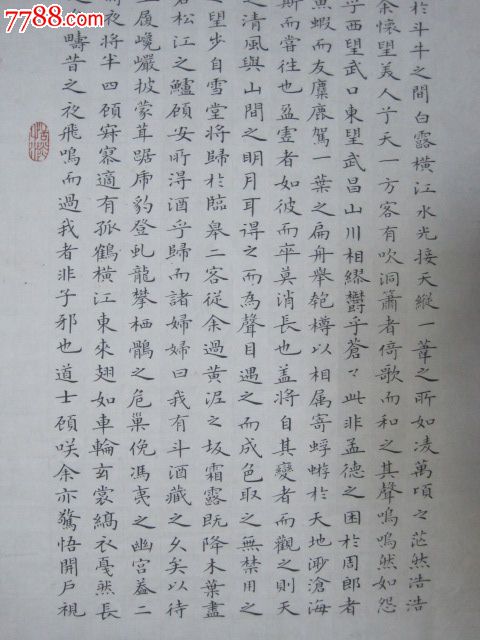 7788.com
於斗牛之間白露橫江水光接天縱一葦之所如凌萬頃之茫然浩浩
余懷望美人兮天一方客有吹洞簫者倚歌而和之其聲嗚嗚然如怨
乎西望武口東望武昌山川相繆鬱乎蒼〻此非孟德之困於周郎者
魚蝦而友麋鹿駕一葉之扁舟舉匏樽以相属寄蜉蝣於天地渺滄海
斯而嘗往也盈虛者如彼而卒莫消長也盖將自其變者而觀之則天
之清風與山間之明月耳得之而為聲目遇之而成色取之無禁用之
之望步自雪堂將歸於臨皋二客從余過黄泥之坂霜露既降木葉盡
松江之鱸顧安所淂酒乎歸而諸婦婦曰我有斗酒藏之久矣以待
履巉巖披蒙茸踞虎豹登虬龍攀栖鶻之危巢俛馮夷之幽宮蓋二
時夜將半四顧寂寥適有孤鶴橫江東來翅如車輪玄裳縞衣戛然長
疇昔之夜飛鳴而過我者非子邪也道士顧咲余亦驚悟開戶視